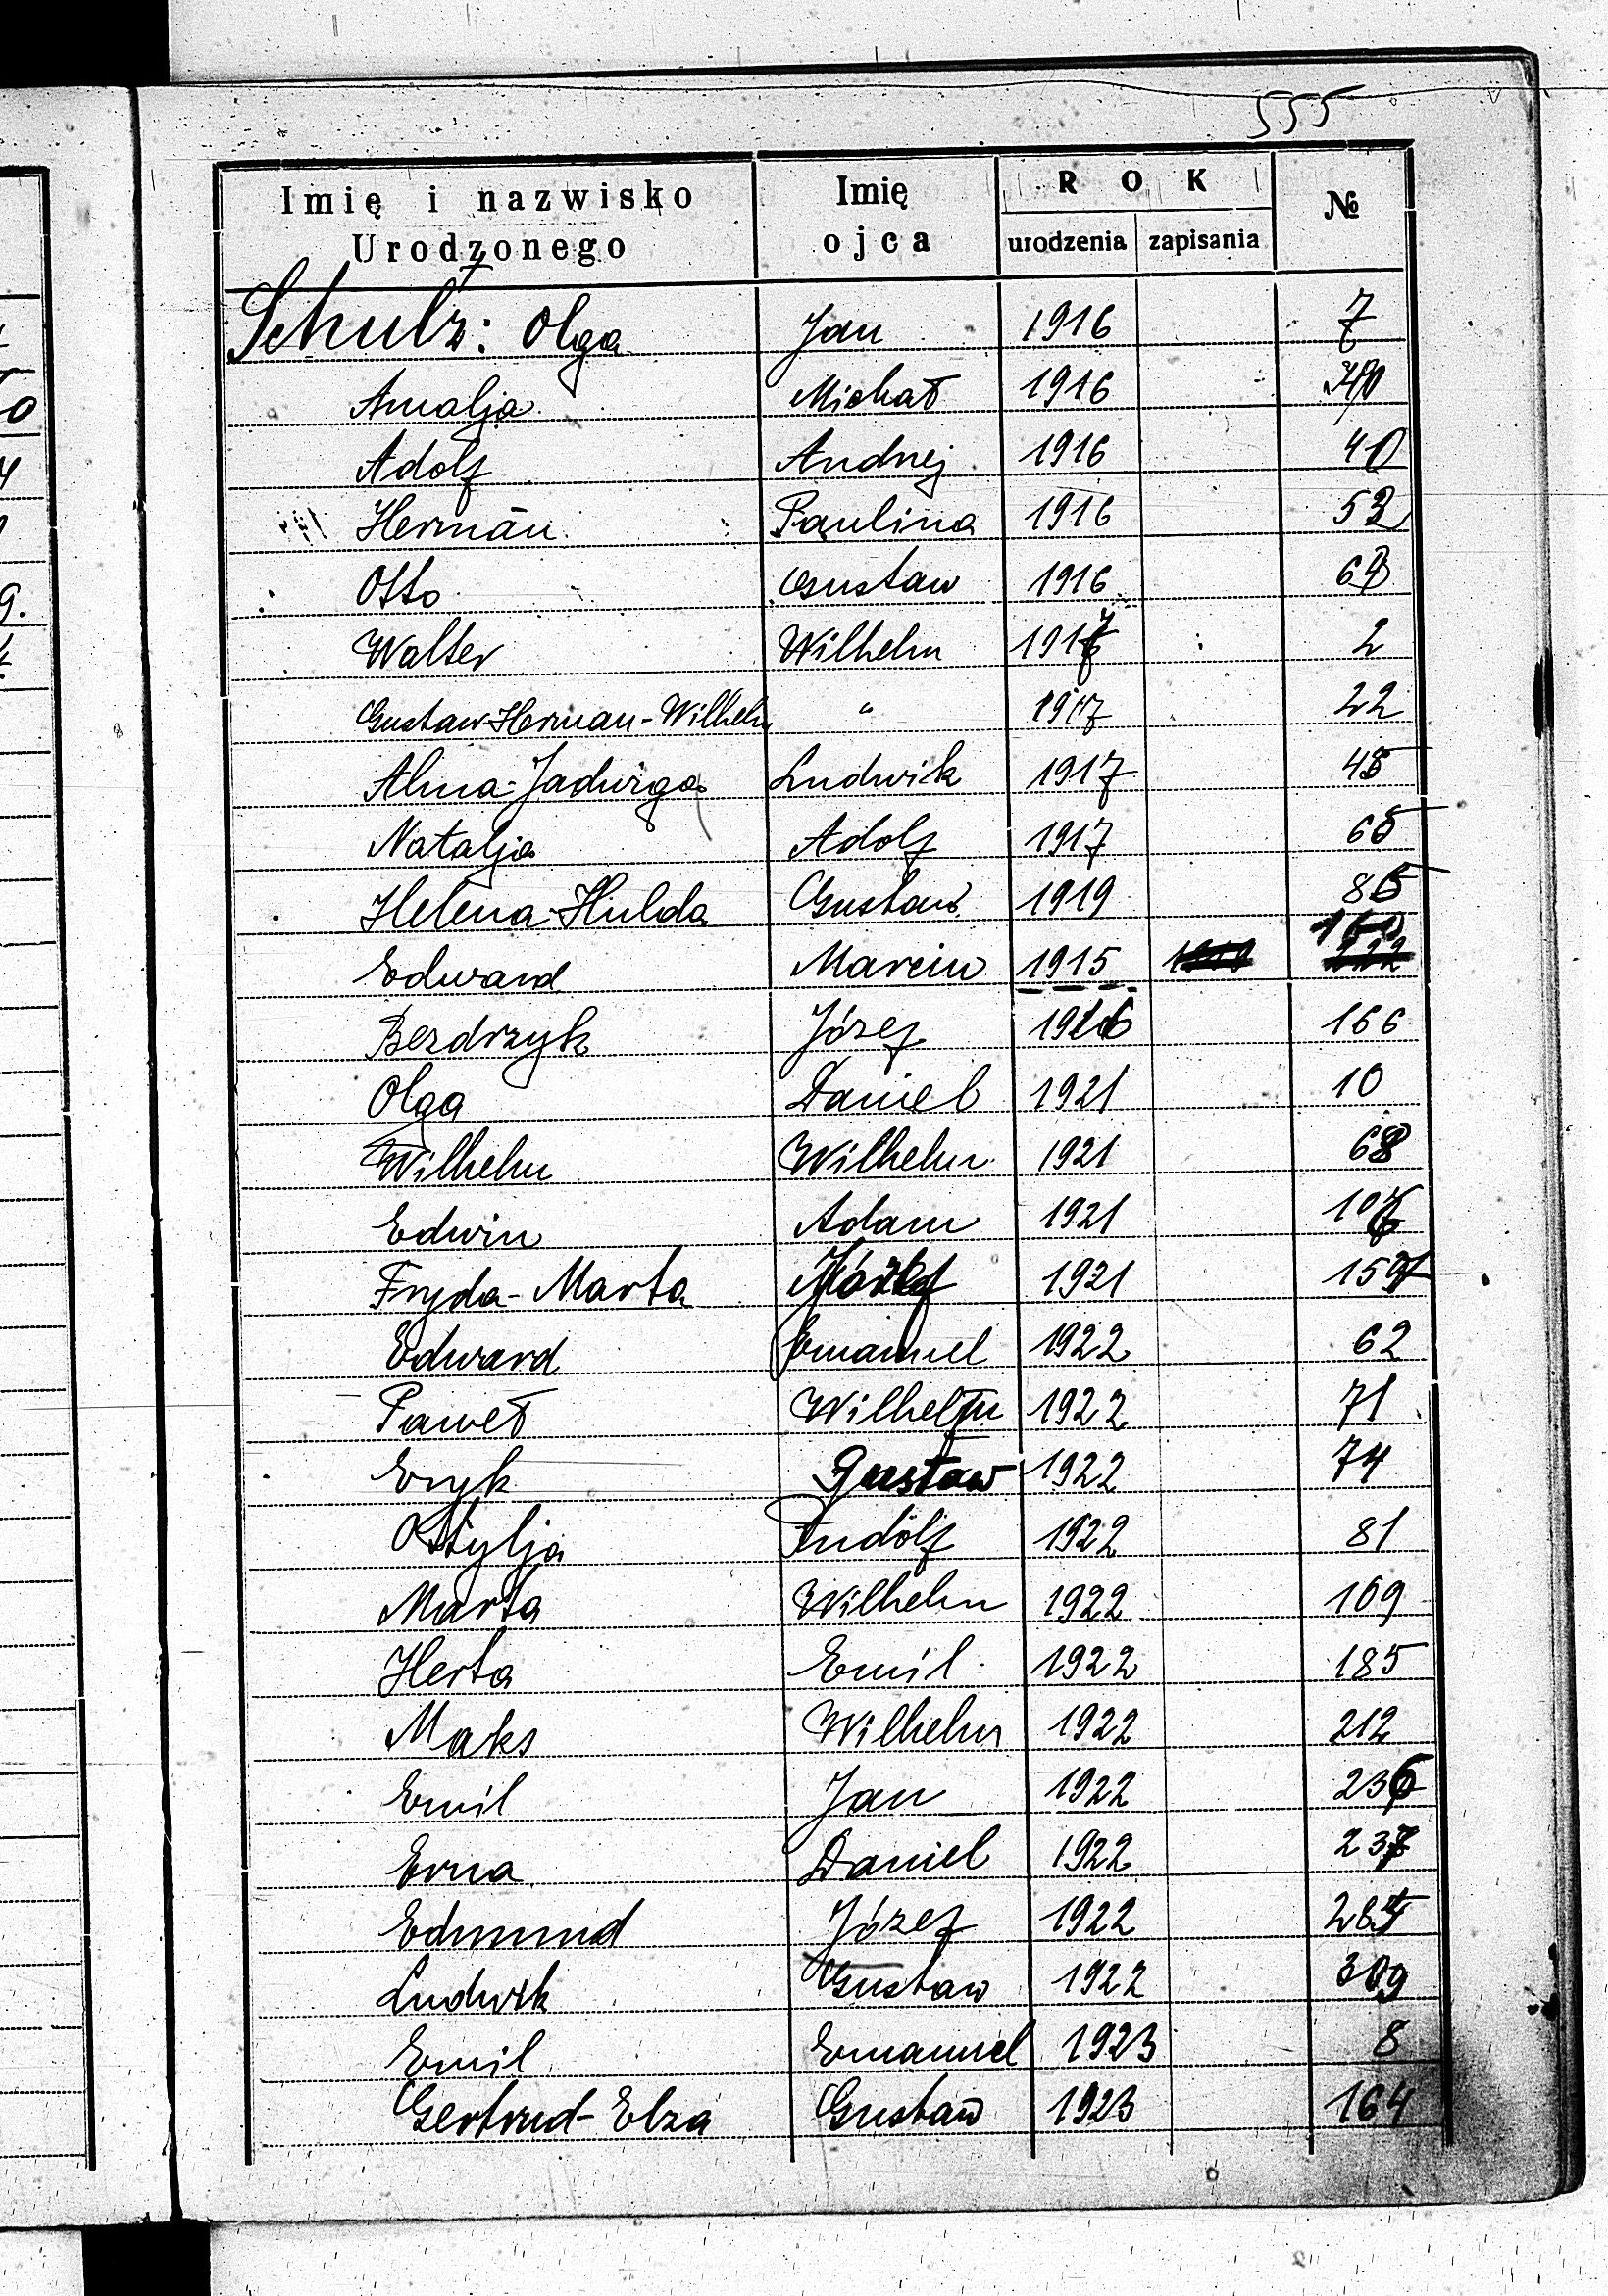 555
Imię i nazwisko Urodzonego Imię ojca ROK urodzenia zapisania №
Schulz: Olga Jan 1916 7
Amalja Michał 1916
Adolf Andrzej 1916 40
Hermān Paulina 1916
Otto Gustaw 1916
Walter Wilhelm 1917 2
Gustaw-Herman-Wilhelm " 1917 22
Alma-Jadwiga Ludwik 1917 45
Natalja Adolf 1917 65
Helena-Hulda Gustaw 1919 85
Edward Marcin 1915 160
Bezdrzyk Józef 1916 166
Olga Daniel 1921 10
Wilhelm Wilhelm 1921
Edwin Adam 1921
Fryda-Marta Józef 1921
Edward Emanuel 1922 62
Paweł Wilhelm 1922 71
Eryk Gustaw 1922 74
Ottylja Rudolf 1922 81
Marta Wilhelm 1922 169
Herta Emil 1922 185
Maks Wilhelm 1922 212
Emil Jan 1922 236
Erna Daniel 1922
Edmund Józef 1922 284
Ludwik Gustaw 1922 309
Emil Emanuel 1923 8
Gertrud-Elza Gustaw 1923 164